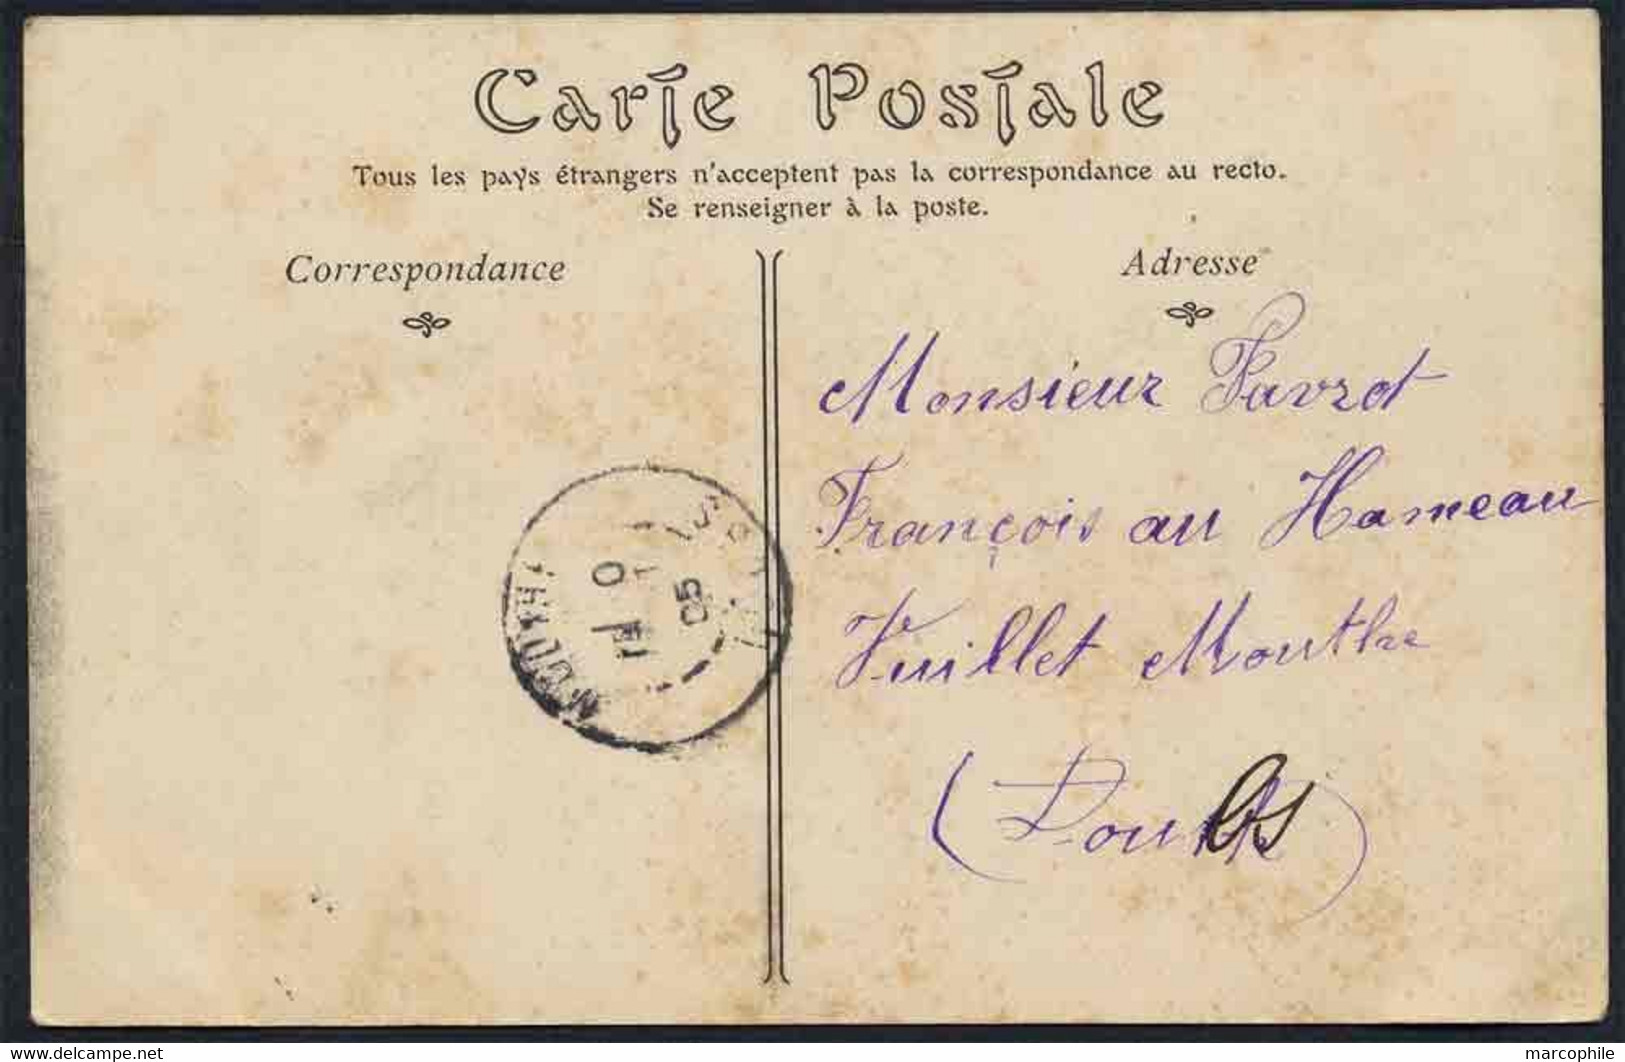 Carte Postale
Tous les pays étrangers n'acceptent pas la correspondance au recto.
Se renseigner à la poste.
Correspondance
Adresse
Monsieur Favrot
François au Hameau
Vuillet Mouthe
(Doubs)
MOUTHE
05
marcophile